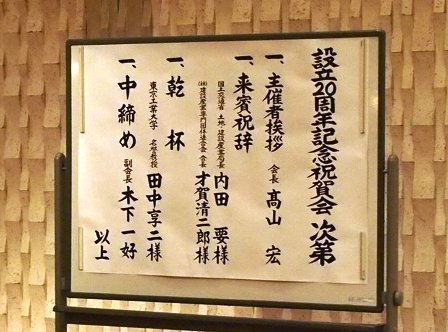 設立20周年記念祝賀会 次第
一、主催者挨拶 会長 髙山 宏
一、来賓祝辞
国土交通省 土地・建設産業局長 内田 要様
(社)建設産業専門団体連合会 会長 才賀清二郎様
一、乾杯
東京工業大学 名誉教授 田中享二様
一、中締め 副会長 木下一好
以上